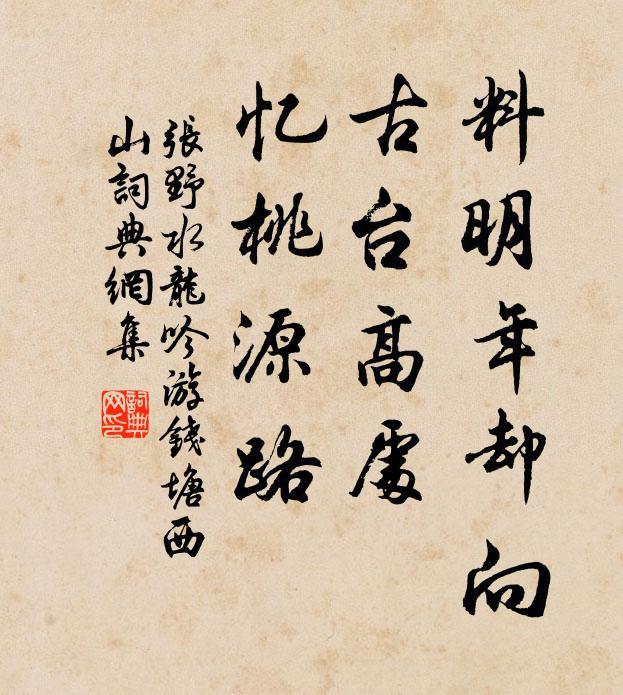 料明年却向
古台高處
忆桃源路
張野水龍吟游錢塘西
山詞典網集
詞典
网印